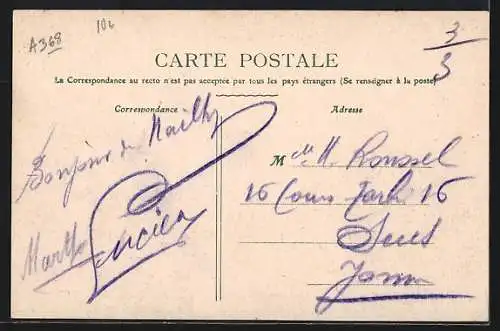 A368
106
3
3
CARTE POSTALE
La Correspondance au recto n'est pas acceptée par tous les pays étrangers (Se renseigner à la poste)
Correspondance
Adresse
Bonjour de Mailly
Lucien
M Roussel
16 Cours 16